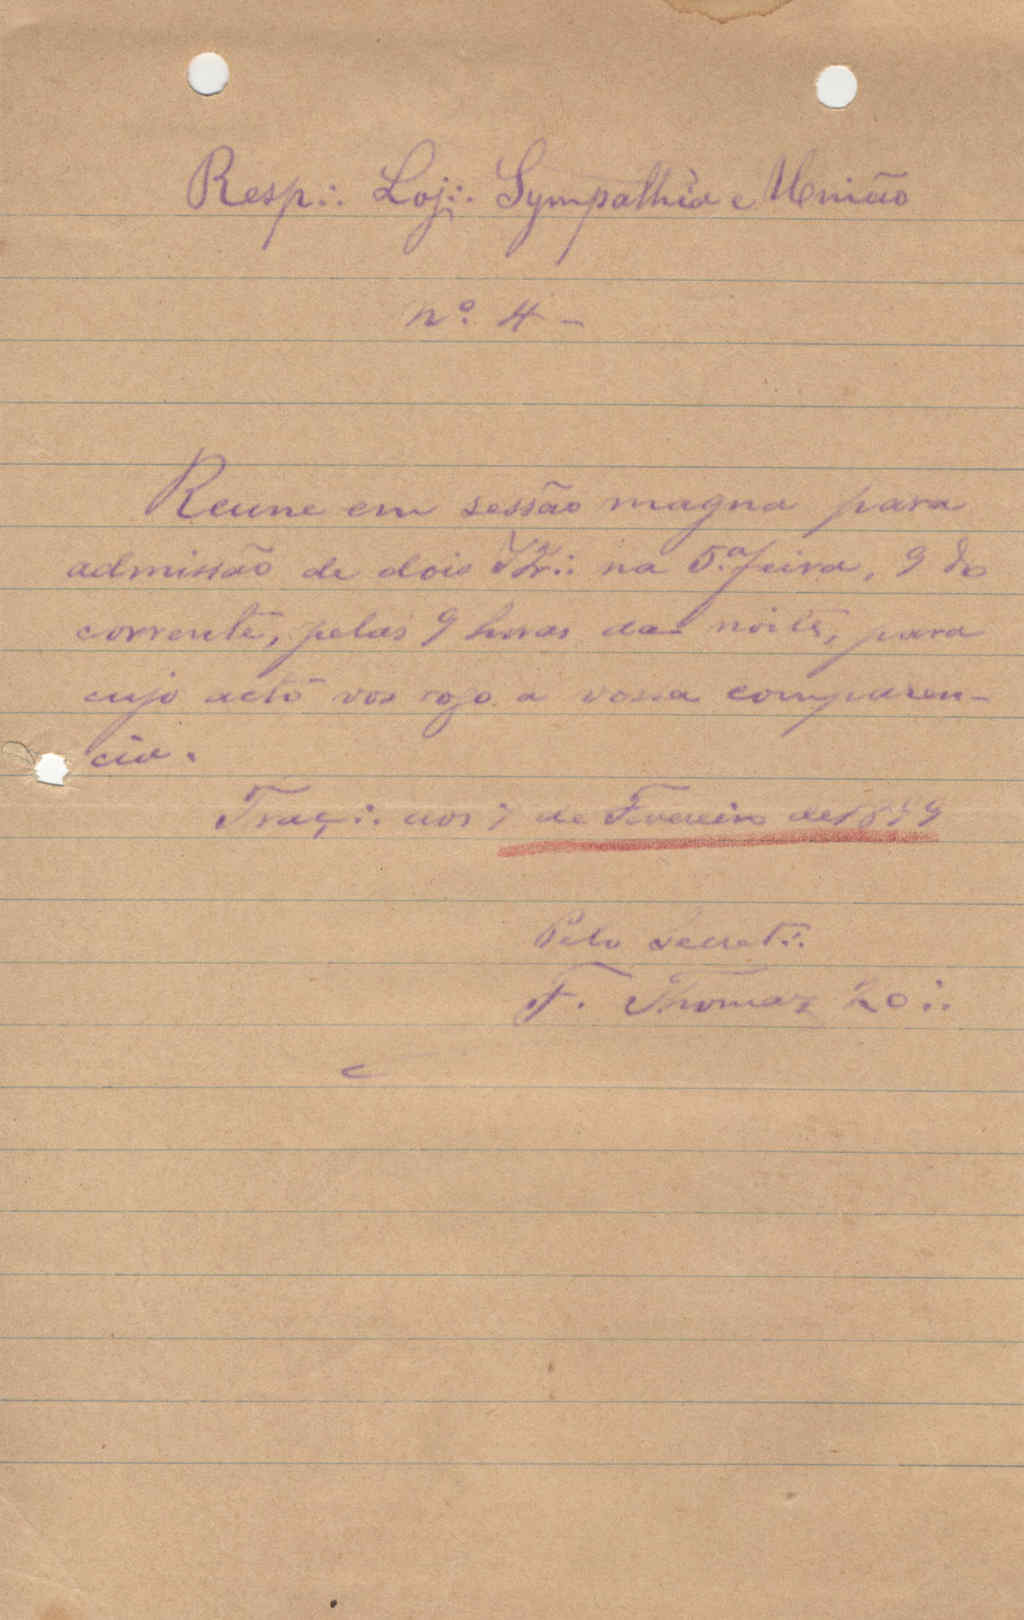 Resp∴ Loj∴ Sympathia e União
nº. 4 -
Reune em sessão magna para
admissão de dois IIr∴ na 5.ª feira, 9 do
corrente, pelas 9 horas da noite, para
cujo acto vos rogo a vossa comparen-
cia.
Traç∴ aos de Fevereiro de
Pelo Secret∴
F. Thomaz 20∴